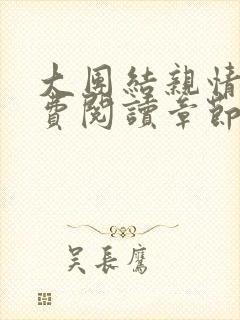 大団結親情
費閱讀章節
吳長鷹